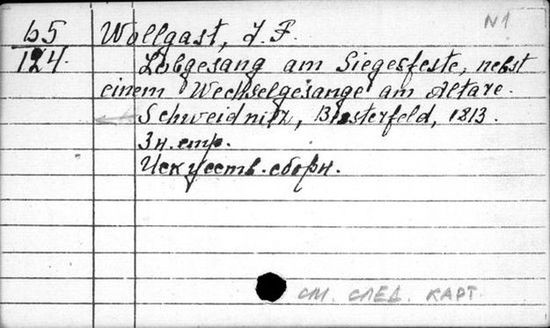 N1
65 Wollgast, J. F.
124. Lobgesang am Siegesfeste, nebst
einem Wechselgesange am Altare.
Schweidnitz, Biesterfeld, 1813.
3н. стр.
Искусств. сборн.
СМ. СЛЕД. КАРТ.